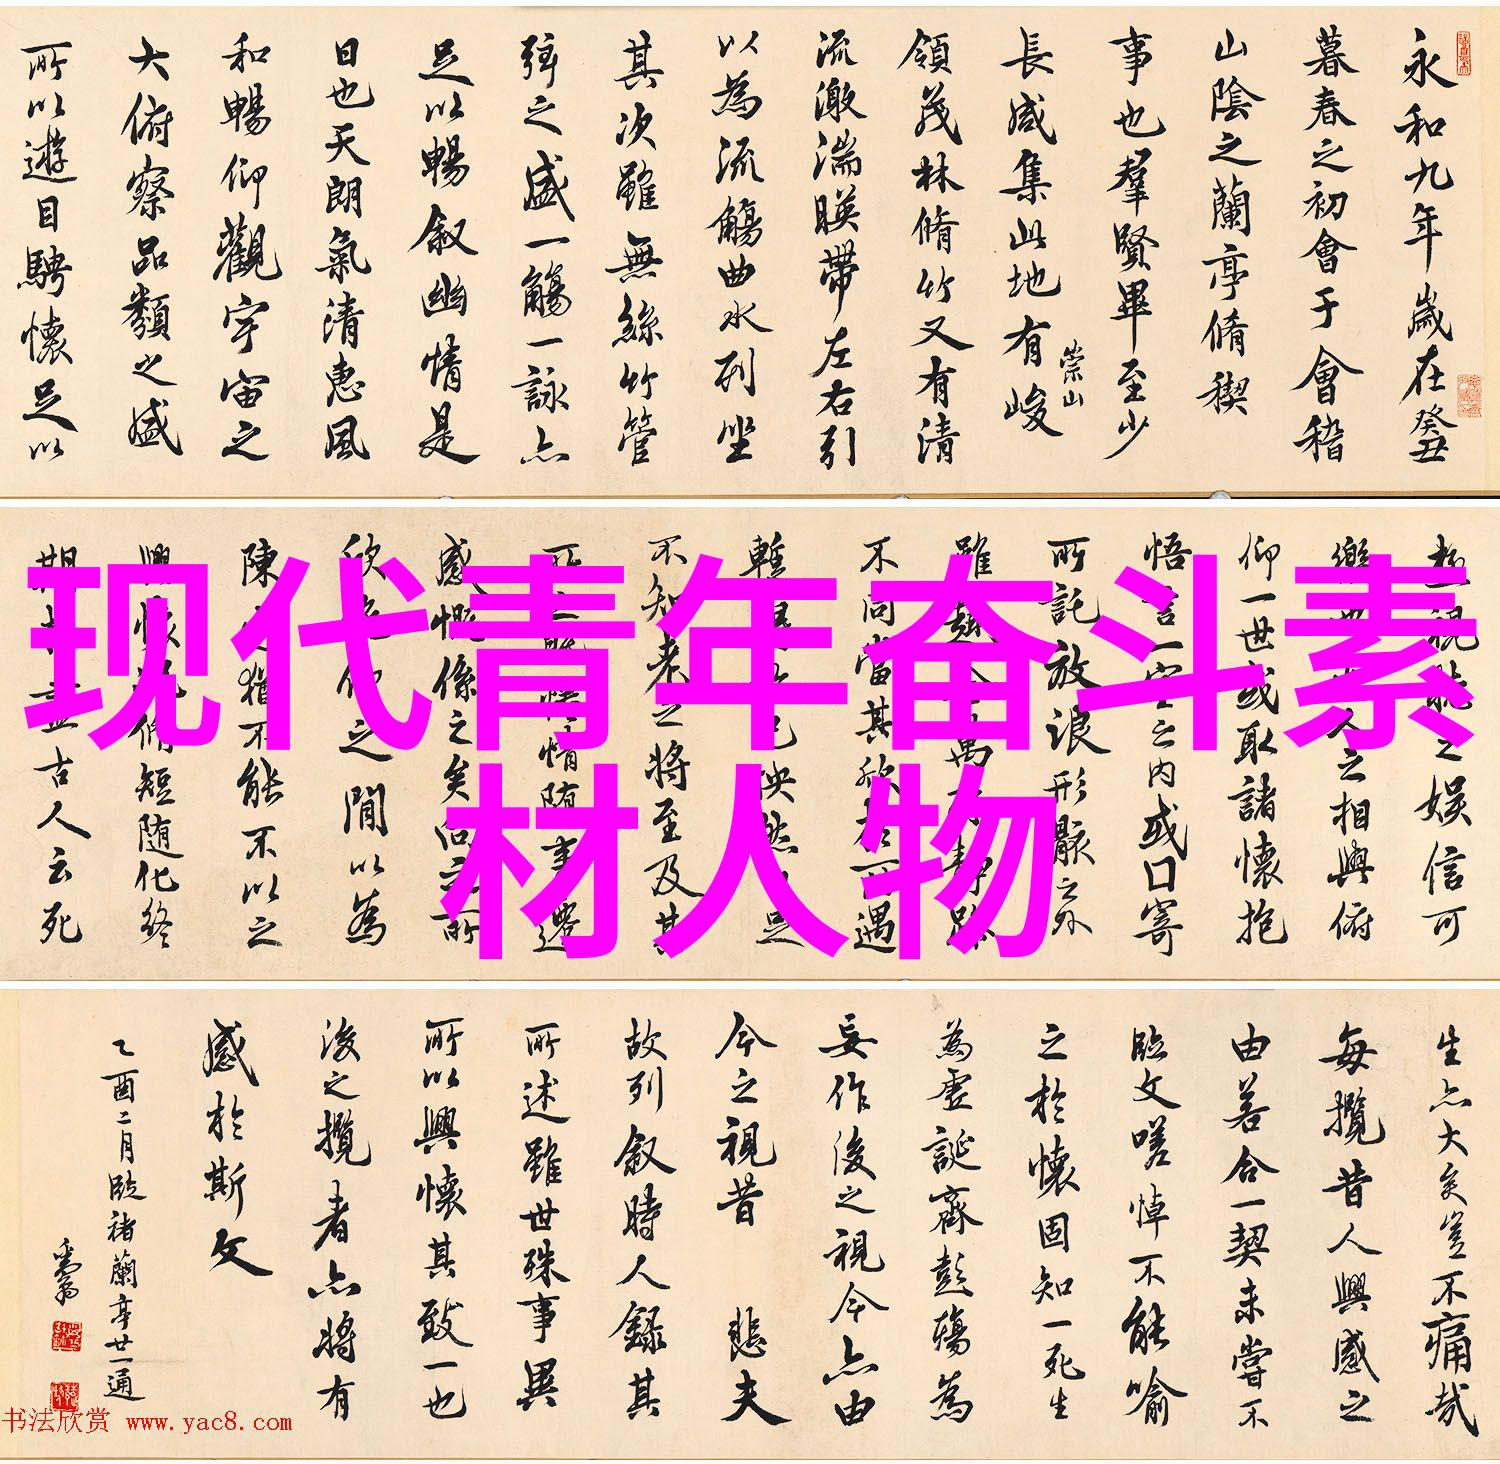 永和九年歲在癸丑
暮春之初會于會稽
山陰之蘭亭脩禊
事也羣賢畢至少
長咸集此地有峻
崇山
領茂林脩竹又有清
流激湍暎帶左右引
以為流觴曲水列坐
其次雖無絲竹管
弦之盛一觴一詠亦
足以暢叙幽情是
日也天朗氣清惠風
和暢仰觀宇宙之
大俯察品類之盛
所以遊目騁懷足以
现代青年奋斗素
材人物
極視聽之娛信可
人之相與俯
仰一世或取諸懷抱
悟言一室之內或因寄
所託放浪形骸之外
雖趣萬
不同當其欣於所遇
暫怏然足
不知老之將至及其
所情随事遷
感慨係之矣向之所
欣仰之閒以為
陳猶不能不以之
興懷脩短随化終
期古人云死
生亦大矣豈不痛哉
每攬昔人興感之
由若合一契未嘗不
臨文嗟悼不能喻
之於懷固知一死生
為虛誕齊彭殤為
妄作後之視今亦由
今之視昔 悲夫
故列叙時人錄其
所述雖世殊事異
所以興懷其致一也
後之攬者亦將有
感於斯文
乙酉二月臨褚蘭亭廿一通
书法欣赏 www.yac8.com